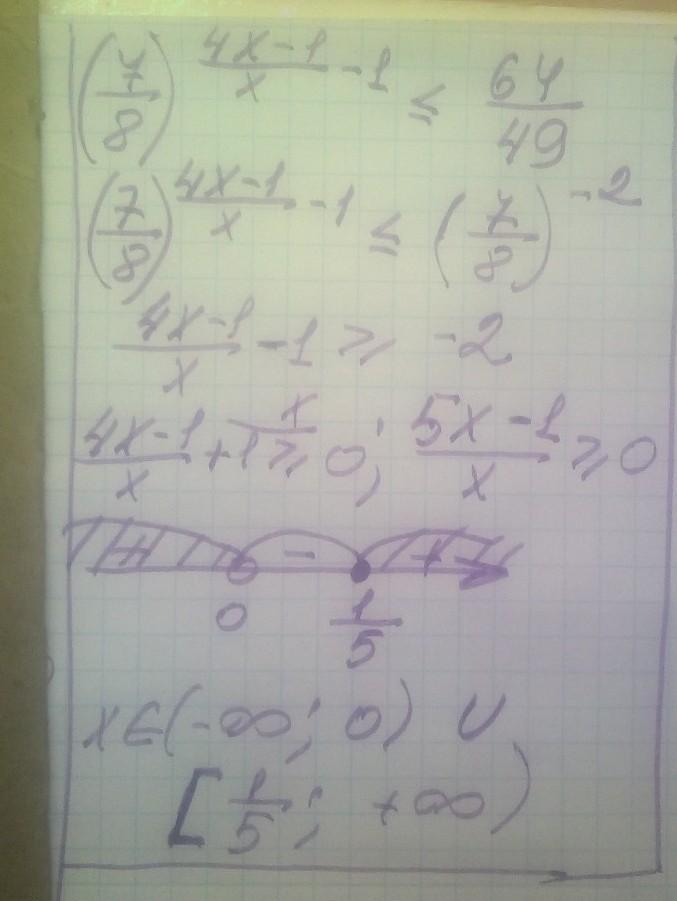 (7/8)^((4x-1)/x - 1) ≤ 64/49
(7/8)^((4x-1)/x - 1) ≤ (7/8)^(-2)
(4x-1)/x - 1 ≥ -2
(4x-1)/x + 1^(x) ≥ 0; (5x-1)/x ≥ 0
+ - +
0 1/5
x∈(-∞; 0) ∪
[1/5; +∞)